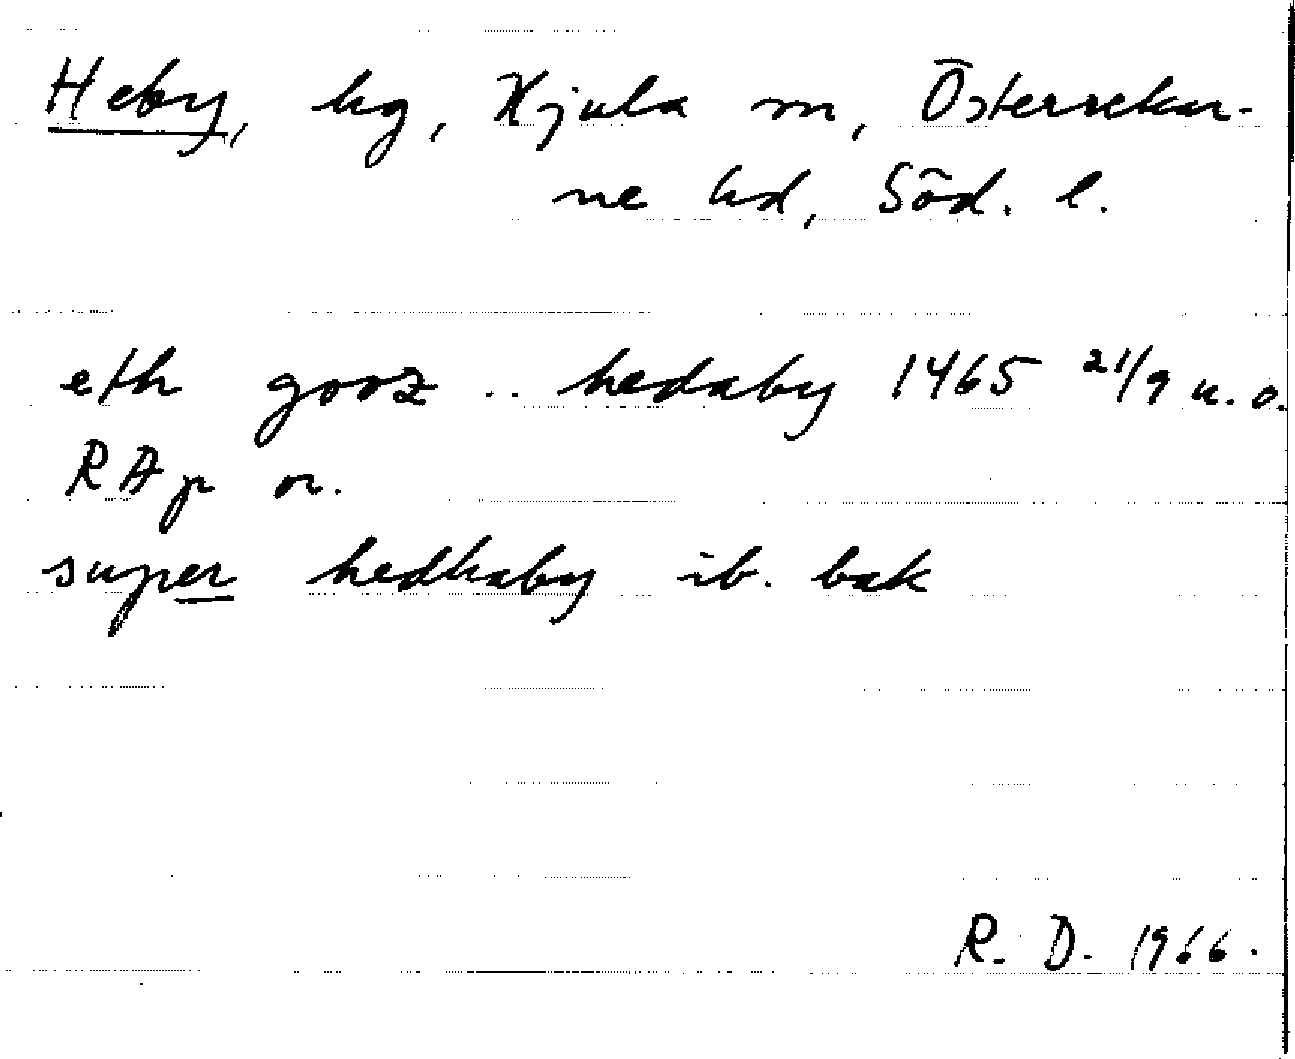 Heby, hg, Kjula sn, Österrekar-
ne hd, Söd. l.
eth gooz .. hedaby 1465 21/9 u. o.
RAp or.
super hedhaby ib. bak
R. D. 1966.